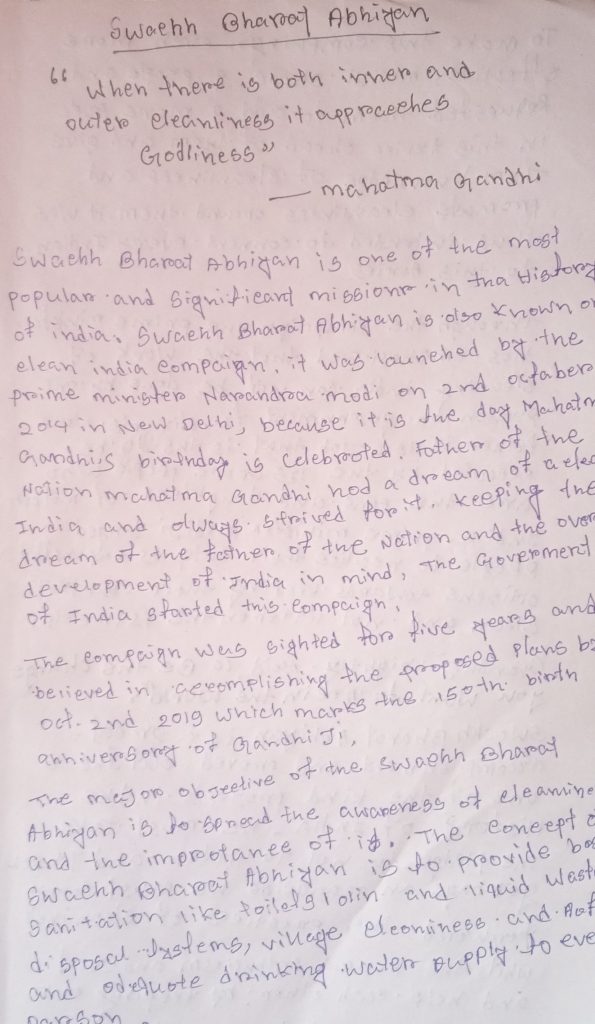 Swachh Bharat Abhiyan
"When there is both inner and
outer cleanliness it approceches
Godliness"
— mahatma Gandhi
Swachh Bharat Abhiyan is one of the most
popular and significant missionr in tha History
of india. Swachh Bharat Abhiyan is also known
clean india compaign, it was launched by the
prime minister Narandra modi on 2nd octaber
2014 in New Delhi, because it is the day Mahatm
Gandhis birthday is celebrated. Father of the
Nation mahatma Gandhi hod a dream of a clec
India and always strived for it. Keeping the
dream of the father of the Nation and the over
development of India in mind, The Goverment
of India started this compaign.
The compaign was sighted for five years and
berieved in accomplishing the proposed plans
oct. 2nd 2019 which marks the 150th birth
anniversory of Gandhi Ji,
The major objective of the swachh Bharat
Abhiyan is to spread the awareness of cleanine
and the improtance of it. The concept
Swachh Bharat Abhiyan is to proovide
Sanitation like toilets and liquid wast
disposal systems, village cleaniness and
and adequate drinking water supply to eve